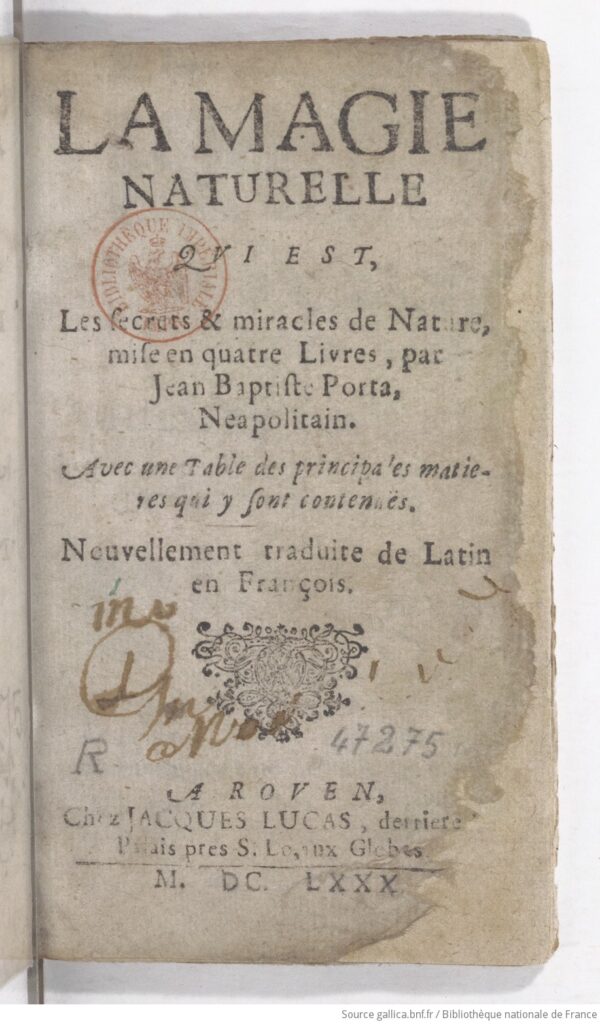 LA MAGIE
NATURELLE
QVI EST,
BIBLIOTHÈQUE IMPÉRIALE
Les ſecrets & miracles de Nature,
miſe en quatre Livres, par
Jean Baptiſte Porta,
Neapolitain.
Avec une Table des principales matie-
res qui y ſont contenuës.
Nouvellement traduite de Latin
en François.
R
47275
A ROVEN,
Chez JACQUES LUCAS, derriere
Palais pres S. Lo, aux Globes
M. DC. LXXX
Source gallica.bnf.fr / Bibliothèque nationale de France